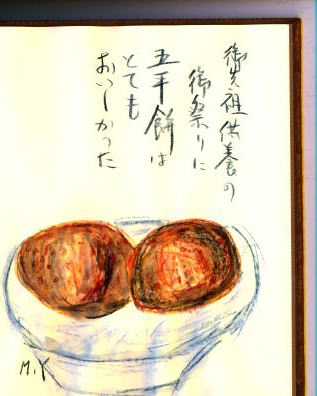 御先祖供養の
御祭りに
五平餅は
とても
おいしかった
M.Y